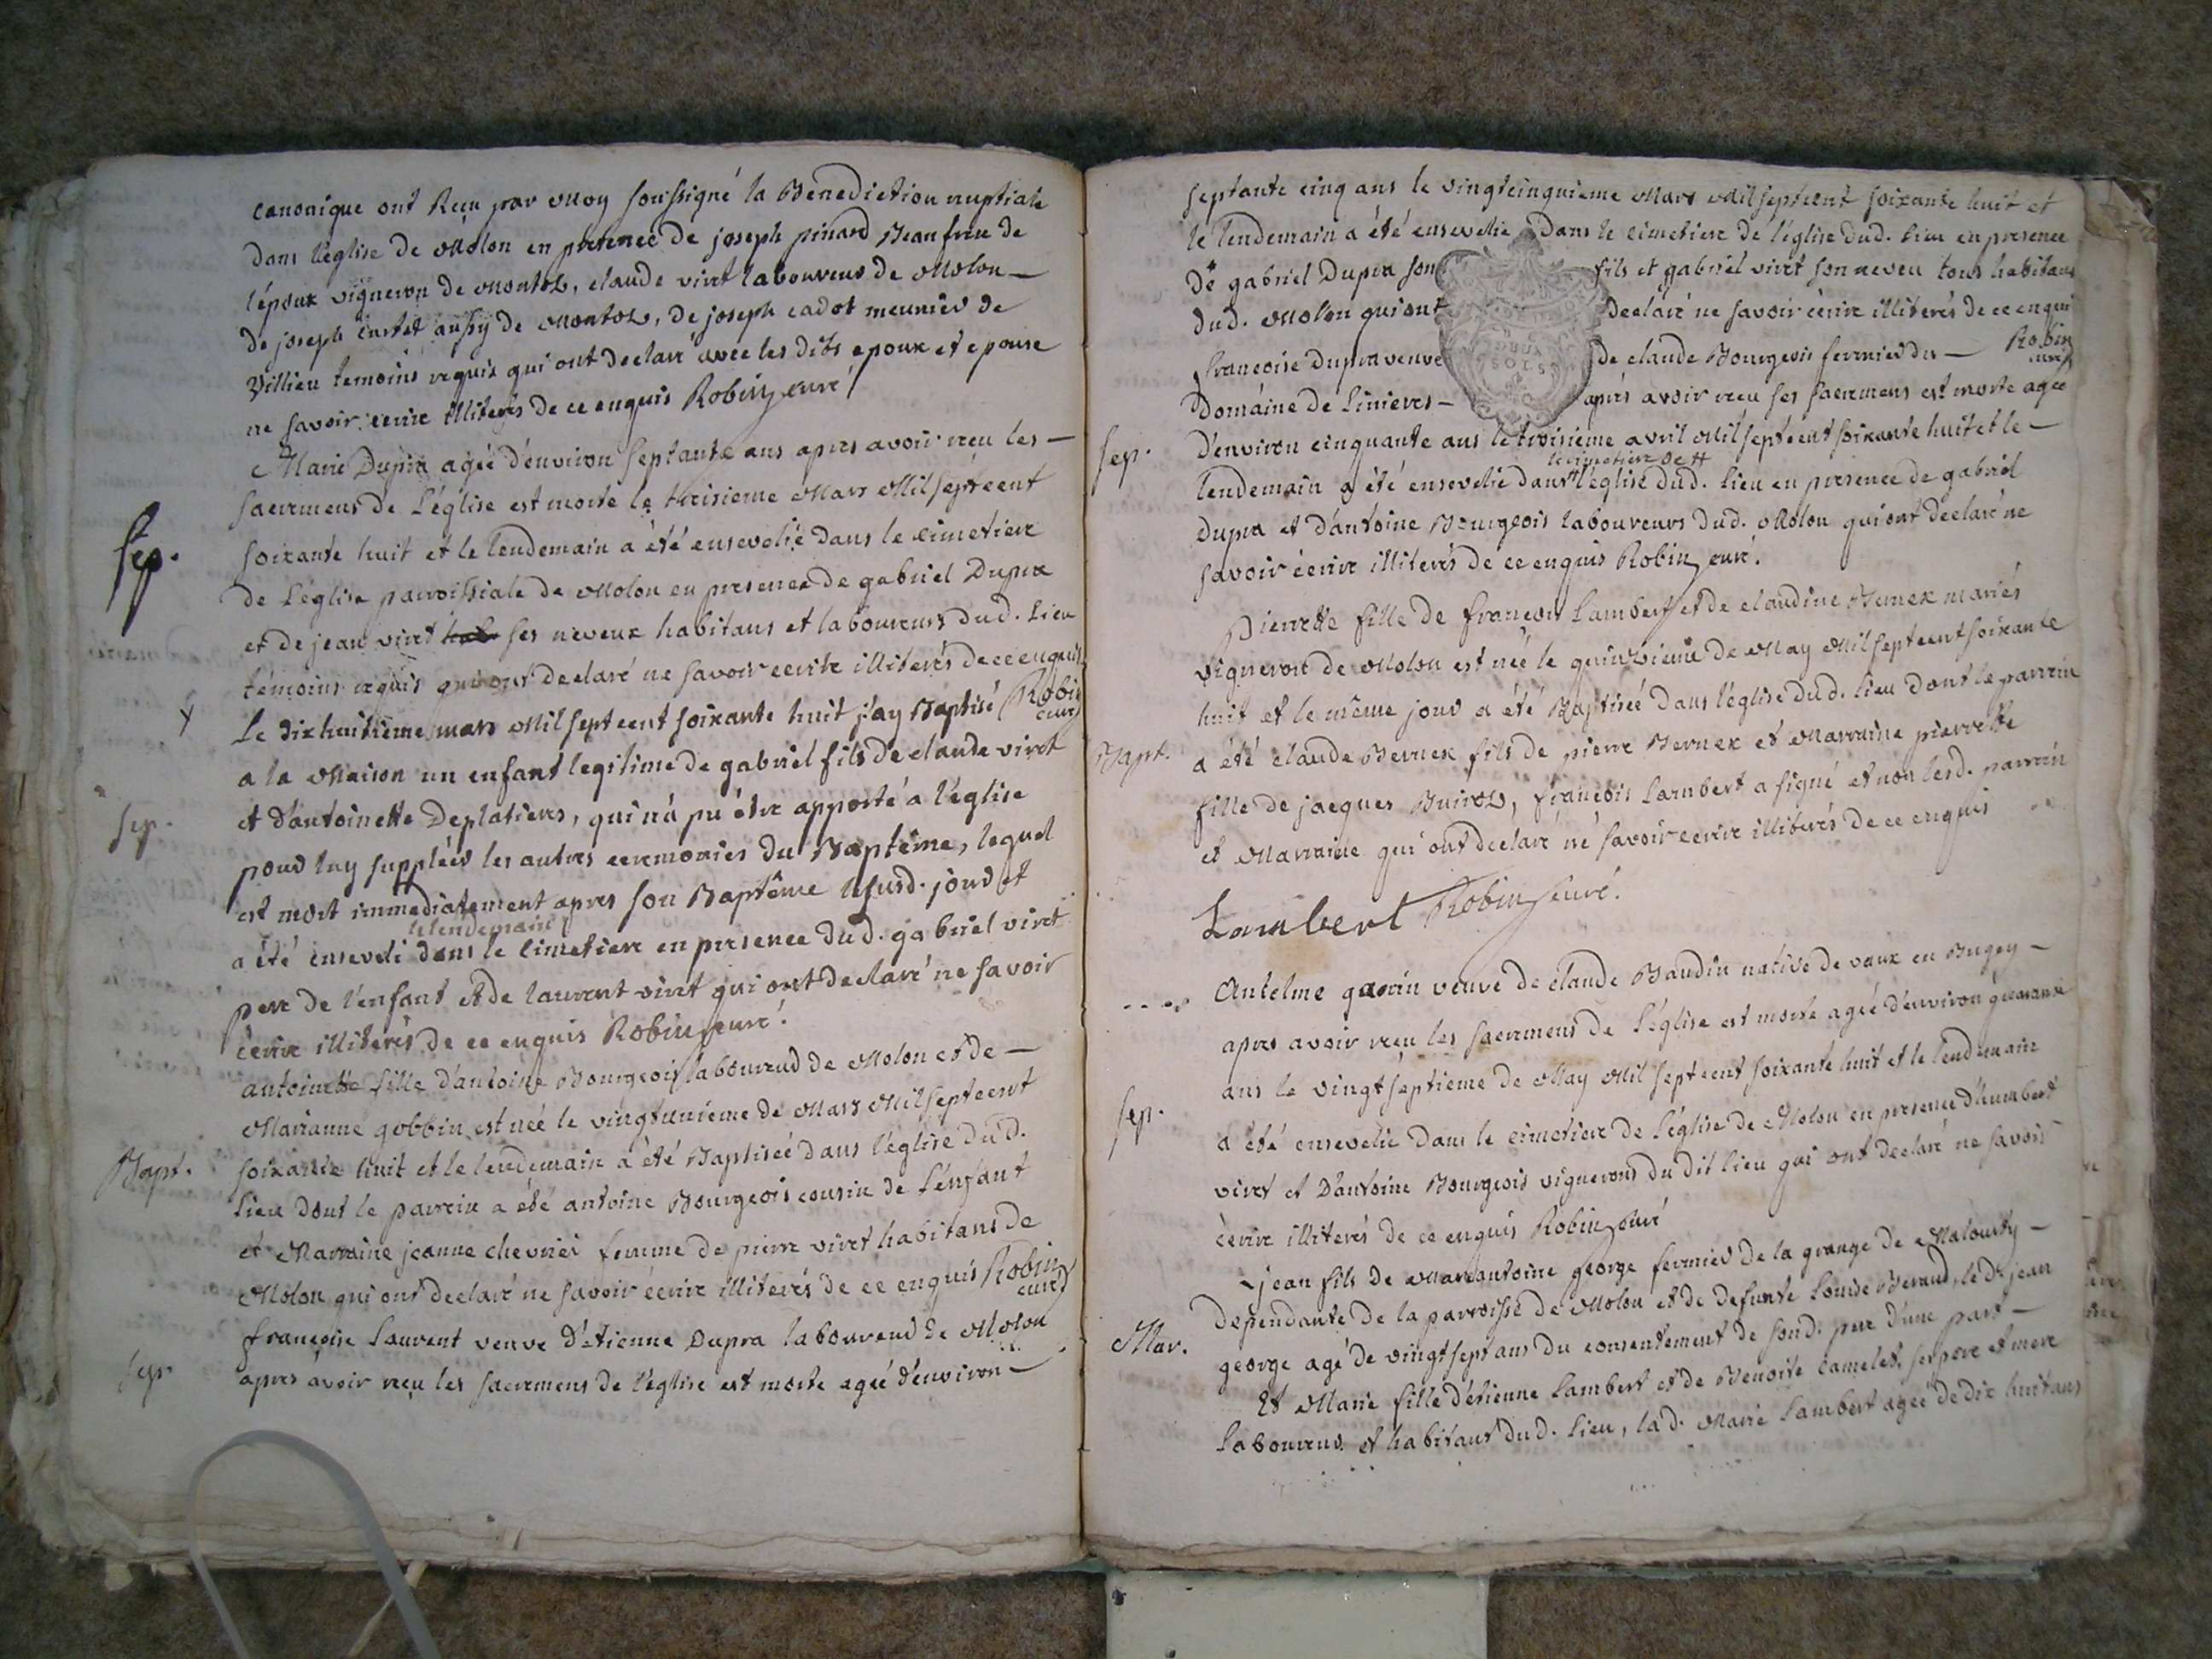 canonique ont Reçu par Moy soussigné la Benediction nuptiale
dans l'église de Molon en presence de joseph pinard Beaufrere de
l'époux vigneron de Montoz, claude viret laboureur de Molon —
de joseph curtet aussy de Montoz, de joseph cadot meunier de
Villieu temoins requis qui ont declaré avec les dits epoux et epouse
ne savoir ecrire illiterés de ce enquis Robin curé
Marie Dupra agée d'environ septante ans apres avoir reçu les —
sacremens de l'église est morte le troisieme Mars Mil septcent
Sep.
soixante huit et le lendemain a été ensevelie dans le cimetiere
de l'église parroissiale de Molon en presence de gabriel Dupra
et de jean viret ses neveux habitans et laboureurs dud. lieu
témoins requis qui ont declaré ne savoir ecrire illiterés de ce enquis
Robin curé
Le dixhuitième mars Mil septcent soixante huit j'ay Baptisé
a la Maison un enfant legitime de gabriel fils de claude viret
Sep.
et d'antoinette Deplatieres, qui n'a pu être apporté a l'église
pour luy suppléer les autres ceremonies du Baptême, lequel
est mort immediatement apres son Baptême le susd. jour et
le lendemain
a été enseveli dans le cimetiere en presence dud. gabriel viret
pere de l'enfant et de laurent viret qui ont declaré ne savoir
écrire illiterés de ce enquis Robin curé.
antoinette fille d'antoine Bourgeois laboureur de Molon et de —
Marianne gobbin est née le vingtunieme de Mars Mil septcent
Bapt.
soixante huit et le lendemain a été Baptisée dans l'église dud.
lieu dont le parrein a été antoine Bourgeois cousin de l'enfant
et Marraine jeanne chevrier femme de pierre viret habitans de
Molon qui ont declaré ne savoir écrire illiterés de ce enquis Robin
curé
françoise laurent veuve d'etienne Dupra laboureur de Molon
Sep.
apres avoir reçu les sacremens de l'église est morte agée d'environ —
septante cinq ans le vingtcinquieme Mars Mil septcent soixante huit et
le lendemain a été ensevelie dans le cimetiere de l'église dud. lieu en presence
de gabriel Dupra son fils et gabriel viret son neveu tous habitans
dud. Molon qui ont declaré ne savoir écrire illiterés de ce enquis
Robin curé
françoise Dupra veuve de claude Bourgeois fermier du —
DEUX SOLS
Domaine de Linieres — après avoir reçu ses sacremens est morte agée
Sep.
d'environ cinquante ans le troisieme avril Mil septcent soixante huit et le —
le cimetiere de #
lendemain a été ensevelie dans # l'église dud. lieu en presence de gabriel
Dupra et d'antoine Bourgeois laboureurs dud. Molon qui ont declaré ne
savoir écrire illiterés de ce enquis Robin curé.
Pierrette fille de françois Lambert et de claudine Bernex mariés
vigneron de Molon est née le quinzieme de May Mil septcent soixante
huit et le même jour a été Baptisée dans l'église dud. lieu dont le parrein
Bapt.
a été claude Bernex fils de pierre Bernex et Marraine pierrette
fille de jacques Buiroz, françois Lambert a signé et non lesd. parrein
et Marraine qui ont declaré ne savoir ecrire illiterés de ce enquis
Lambert Robin curé.
Antelme guerin veuve de claude Baudin native de vaux en Bugey —
apres avoir reçu les sacremens de l'église est morte agée d'environ quarante
ans le vingtseptieme de May Mil septcent soixante huit et le lendemain
Sep.
a été ensevelie dans le cimetiere de l'église de Molon en presence d'humbert
viret et d'antoine Bourgeois vignerons du dit lieu qui ont declaré ne savoir
écrire illiterés de ce enquis Robin curé
jean fils de Marcantoine george fermier de la grange de Malourty —
Dependante de la parroisse de Molon et de defunte Louise Beraud, le d. jean
Mar.
george agé de vingtsept ans du consentement de sond. pere d'une part —
Et Marie fille d'étienne Lambert et de Benoite Camelet, ses pere et mere
laboureur et habitans dud. lieu, lad. Marie Lambert agée de dix huit ans